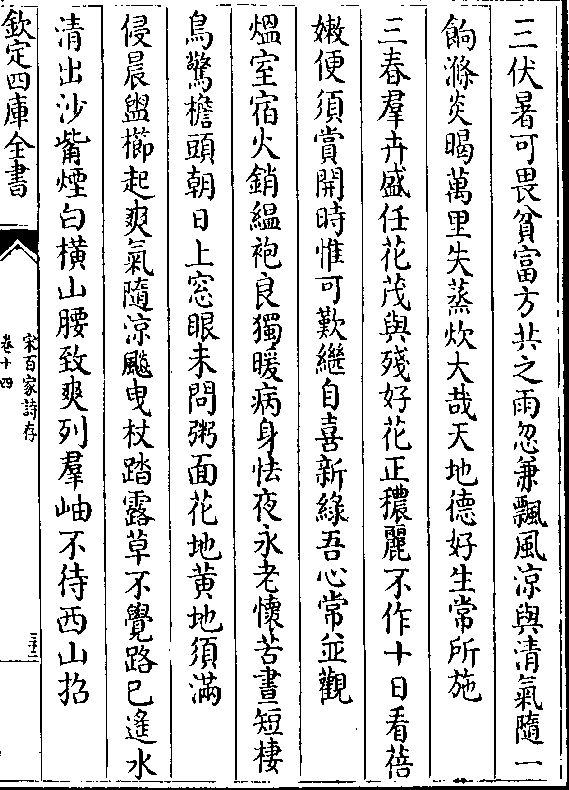 三伏暑可畏貧富方共之雨忽兼飄風涼與清氣隨一
餉滌炎暍萬里失蒸炊大哉天地德好生常所施
三春羣卉盛任花茂與殘好花正穠麗不作十日看蓓
嫩便須賞開時惟可歎繼自喜新綠吾心常並觀
熅室宿火銷緼袍良獨暖病身怯夜永老懷苦晝短棲
鳥驚檐頭朝日上窓眼未問粥面花地黄地須滿
侵晨盥櫛起爽氣隨涼飈曳杖踏露草不覺路已遙水
清出沙觜煙白橫山腰致爽列羣岫不待西山招
欽定四庫全書
宋百家詩存
卷十四